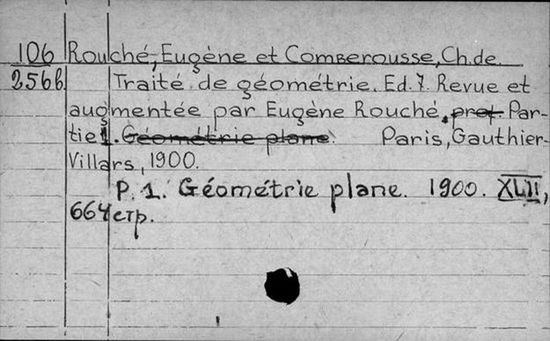 106 Rouché, Eugène et Comberousse, Ch. de
256b Traité de géométrie. Ed. 7. Revue et
augmentée par Eugène Rouché. Par-
tie 1. Géométrie plane. Paris, Gauthier-
Villars, 1900.
P. 1. Géométrie plane. 1900. XLII,
664 стр.